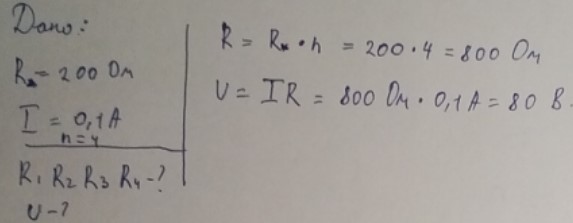 Дано:
Rₓ = 200 Ом
I = 0,1 А
n = 4
R₁ R₂ R₃ R₄ - ?
U - ?
R = Rₓ · n = 200 · 4 = 800 Ом
U = IR = 800 Ом · 0,1 А = 80 В.